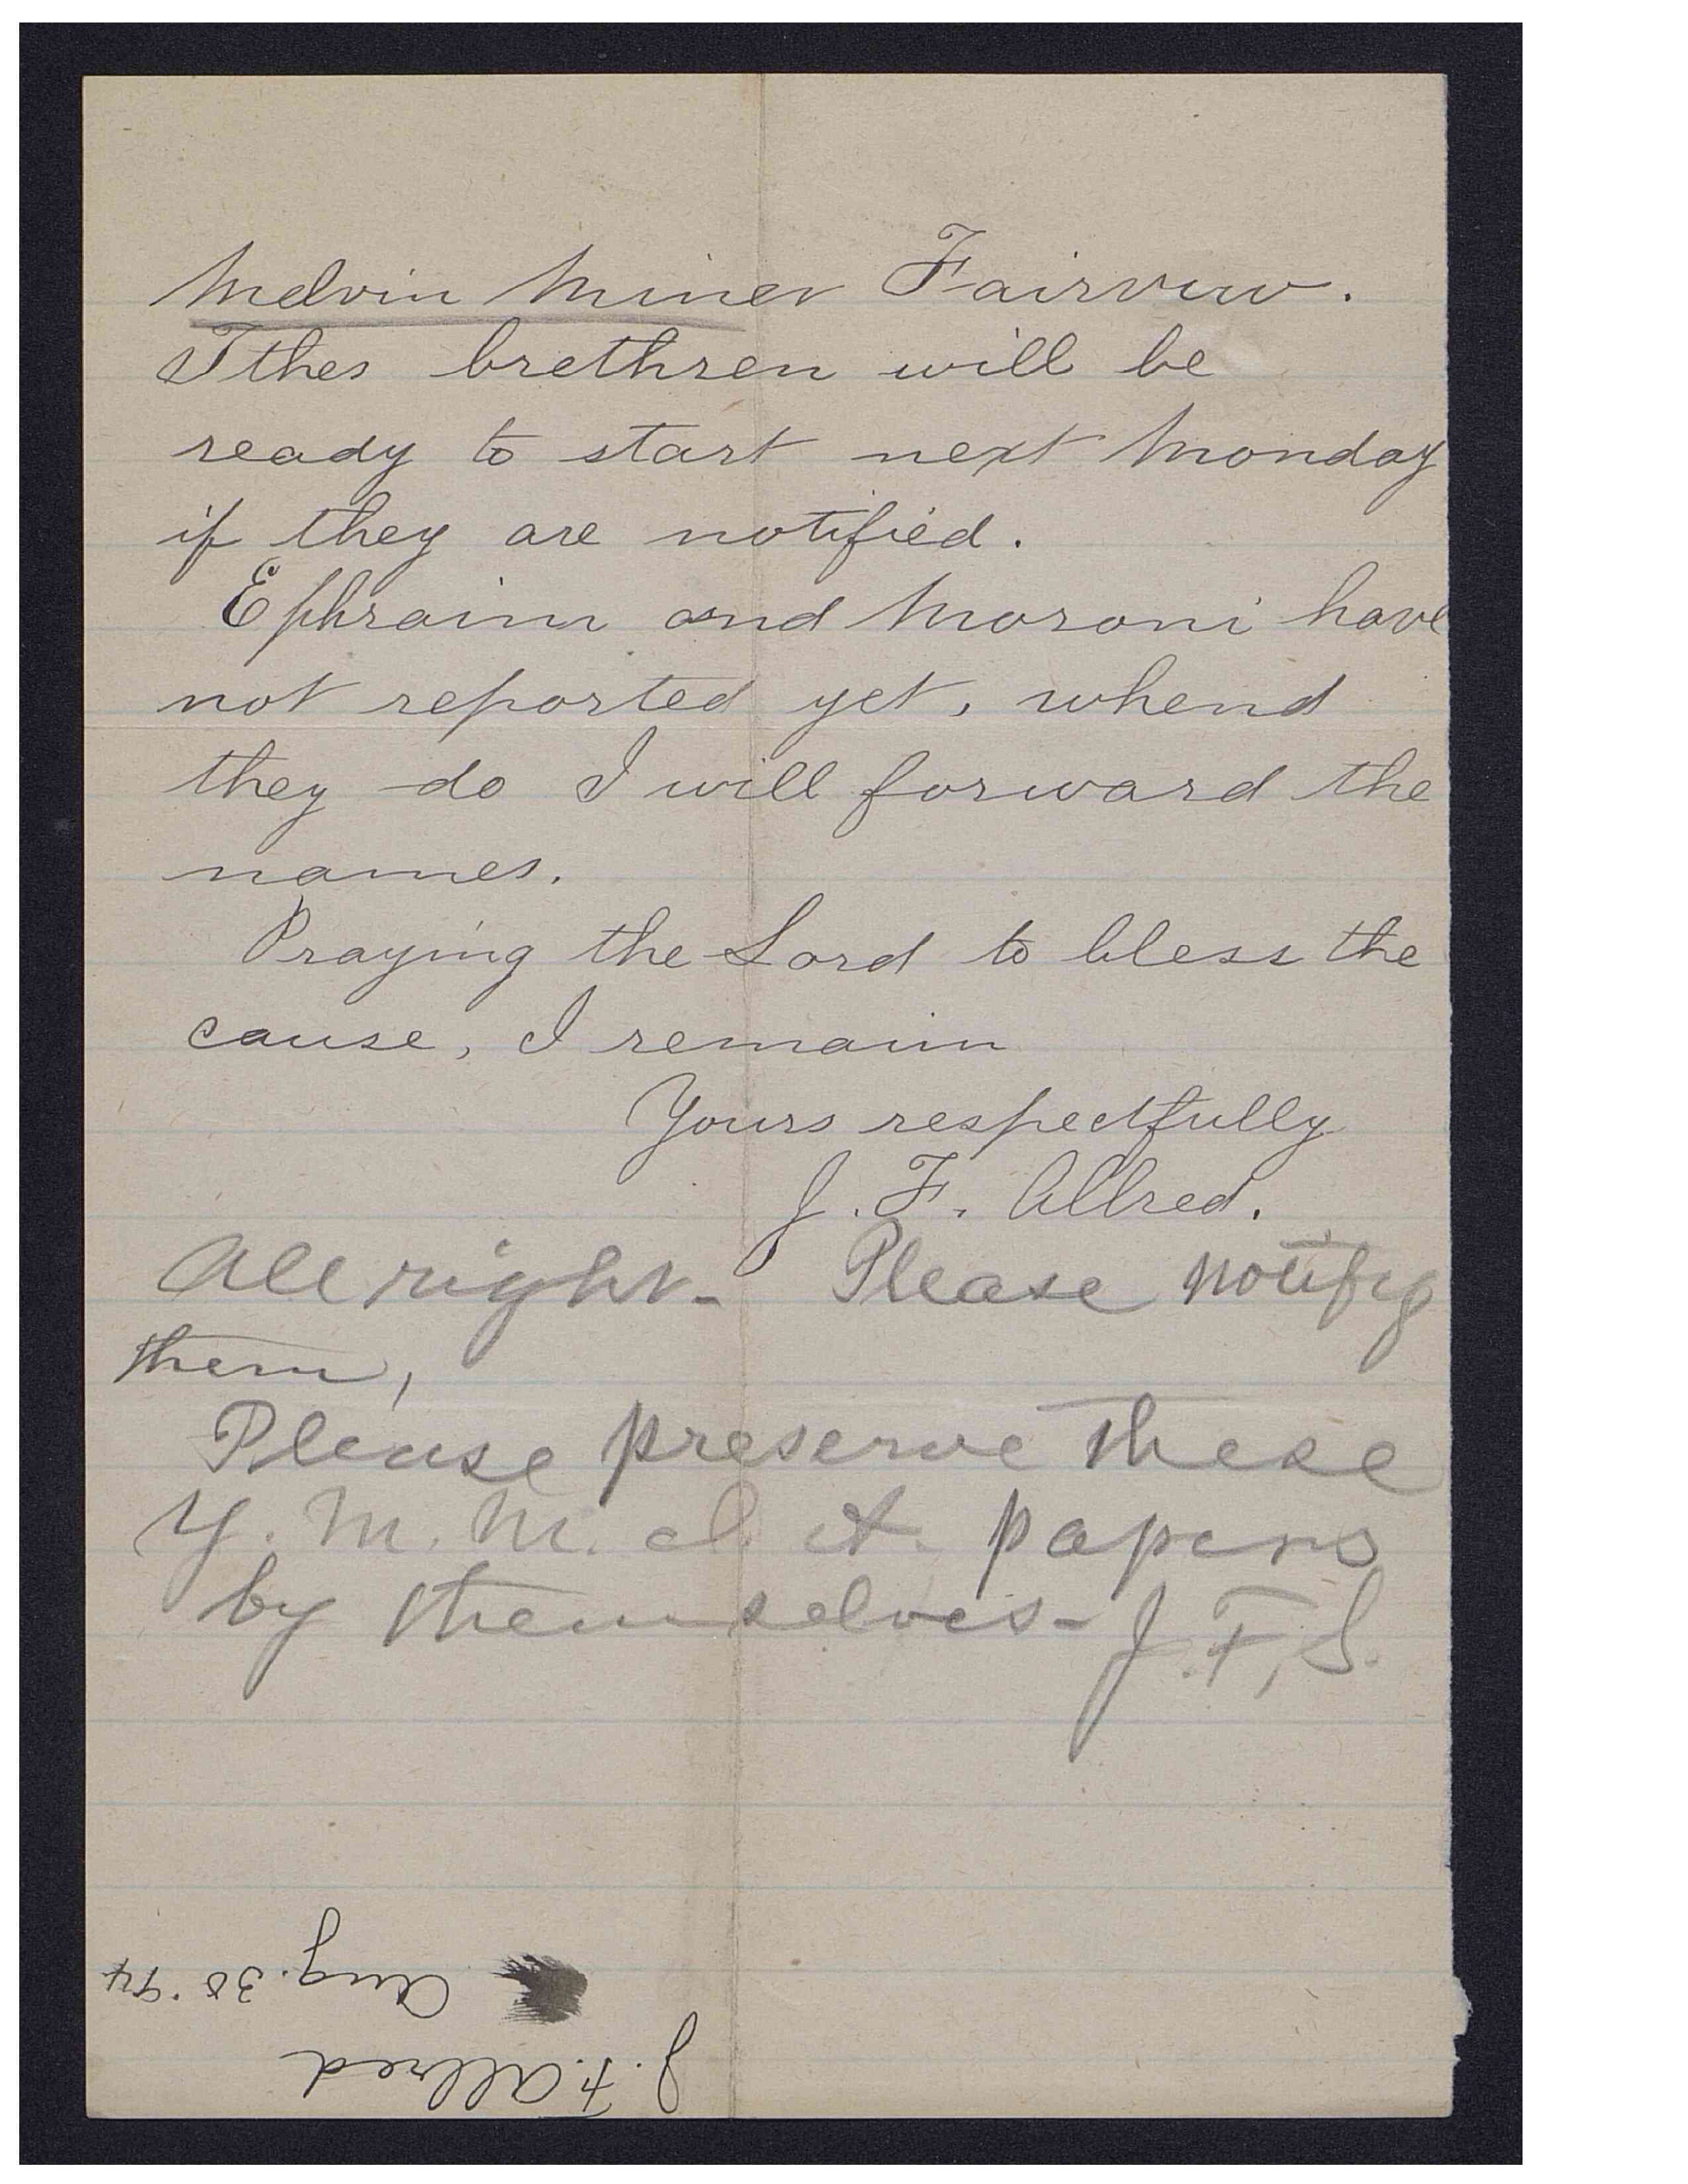 Melvin Miner Fairview.
Tthes brethren will be
ready to start next Monday
if they are notified.
Ephraim and Moroni have
not reported yet, whend
they do I will forward the
names.
Praying the Lord to bless the
cause, I remain
Yours respectfully
J. F. Allred.
All right - Please notify
them,
Please preserve these
Y. M. M. I. A. papers
by themselves - J. F. S.
J. F. Allred
Aug. 30 '94